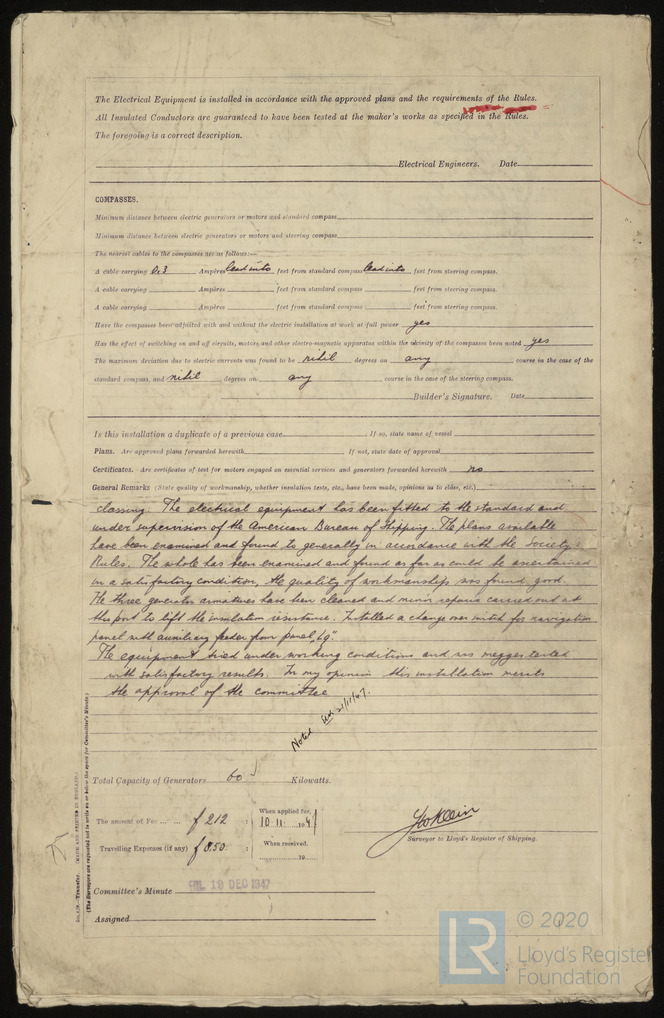 The Electrical Equipment is installed in accordance with the approved plans and the requirements of the Rules.
All Insulated Conductors are guaranteed to have been tested at the maker's works as specified in the Rules.
The foregoing is a correct description.
Electrical Engineers. Date
COMPASSES.
Minimum distance between electric generators or motors and standard compass
Minimum distance between electric generators or motors and steering compass
The nearest cables to the compasses are as follows:—
A cable carrying 0.3 Ampères lead into feet from standard compass lead into feet from steering compass.
A cable carrying Ampères feet from standard compass feet from steering compass.
A cable carrying Ampères feet from standard compass feet from steering compass.
Have the compasses been adjusted with and without the electric installation at work at full power yes
Has the effect of switching on and off circuits, motors and other electro-magnetic apparatus within the vicinity of the compasses been noted yes
The maximum deviation due to electric currents was found to be nihil degrees on any course in the case of the
standard compass, and nihil degrees on any course in the case of the steering compass.
Builder's Signature. Date
Is this installation a duplicate of a previous case If so, state name of vessel
Plans. Are approved plans forwarded herewith If not, state date of approval
Certificates. Are certificates of test for motors engaged on essential services and generators forwarded herewith no
General Remarks (State quality of workmanship, whether insulation tests, etc., have been made, opinions as to class, etc.)
classing. The electrical equipment has been fitted to the standard and
under supervision of the American Bureau of Shipping. The plans available
have been examined and found to generally in accordance with the Society's
Rules. The whole has been examined and found as far as could be ascertained
in a satisfactory condition, the quality of workmanship was found good.
The three generator armatures have been cleaned and minor repairs carried out at
this port to lift the insulation resistance. Installed a change over switch for navigation
panel with auxiliary feeder from panel "L9".
The equipment tried under working conditions and was megger tested
with satisfactory results. In my opinion this installation merits
the approval of the committee
Noted 21/11/47.
Total Capacity of Generators 60 Kilowatts.
The amount of Fee ... ... £ 212 : When applied for, 10.11.1947
Travelling Expenses (if any) £ 8.50 : When received, 19
Surveyor to Lloyd's Register of Shipping.
Committee's Minute FRI. 19 DEC 1947
Assigned
Transfer. (MADE AND PRINTED IN ENGLAND.)
(The Surveyors are requested not to write on or below the space for Committee's Minute.)
LR
© 2020
Lloyd's Register
Foundation